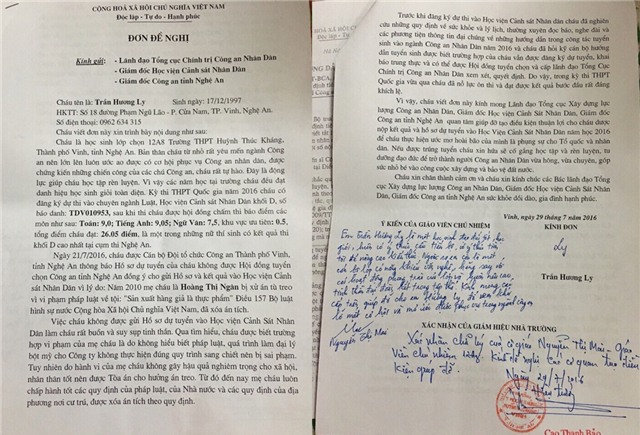 CỘNG HOÀ XÃ HỘI CHỦ NGHĨA VIỆT NAM
Độc lập - Tự do - Hạnh phúc
ĐƠN ĐỀ NGHỊ
Kính gửi: - Lãnh đạo Tổng cục Chính trị Công an Nhân Dân
- Giám đốc Học viện Cảnh sát Nhân Dân
- Giám đốc Công an tỉnh Nghệ An
Cháu tên là: Trần Hương Ly Sinh ngày: 17/12/1997
HKTT: Số 18 đường Phạm Ngũ Lão - P. Cửa Nam, TP. Vinh, Nghệ An.
Số điện thoại: 0962 634 315
Cháu viết đơn này xin trình bày nội dung như sau:
Cháu là học sinh lớp 12A8 Trường THPT Huỳnh Thúc Kháng,
Thành phố Vinh, tỉnh Nghệ An. Bản thân cháu từ nhỏ rất yêu mến ngành Công
an nên lớn lên luôn ước ao được có cơ hội phục vụ Công an nhân dân, được
chứng kiến những chiến công của các chú Công an, cháu rất tự hào. Đây là động
lực giúp cháu học tập rèn luyện. Vì vậy các năm học tại trường cháu đều đạt
danh hiệu học sinh giỏi toàn diện. Kỳ thi THPT Quốc gia năm 2016 cháu có
đăng ký dự thi vào chuyên ngành Luật, Học viện Cảnh sát Nhân Dân khối D, số
báo danh: TDV010953, sau khi thi cháu được hội đồng chấm thi báo điểm các
môn như sau: Toán: 9,0; Tiếng Anh: 9,05; Ngữ Văn: 7,5, khu vực ưu tiên: 0.5,
tổng điểm cháu đạt: 26.05 điểm, là một trong những nữ thí sinh có kết quả thi
khối D cao nhất tại cụm thi Nghệ An.
Ngày 21/7/2016, cháu được Cán bộ Đội tổ chức Công an Thành phố Vinh,
tỉnh Nghệ An thông báo Hồ sơ dự tuyển của cháu không được Hội đồng tuyển
chọn Công an tỉnh Nghệ An đồng ý cho gửi Hồ sơ và kết quả vào Học viện Cảnh
sát Nhân Dân vì lý do: Năm 2010 mẹ cháu là Hoàng Thị Ngân bị xử án tù treo
vì vi phạm pháp luật về tội: "Sản xuất hàng giả là thực phẩm" Điều 157 Bộ luật
hình sự nước Cộng hòa Xã hội Chủ nghĩa Việt Nam, đã xóa án tích.
Việc cháu không được gửi Hồ sơ vào Học viện Cảnh Sát Nhân Dân
làm cháu rất buồn và suy sụp tinh thần. Qua tìm hiểu, cháu được biết trường
hợp vi phạm của mẹ cháu là do không hiểu biết pháp luật, quá trình làm đại lý
bột mỳ cho Công ty không thực hiện đúng quy trình sang chiết nên bị sai phạm.
Tuy nhiên do hành vi của mẹ cháu không gây hậu quả nghiêm trọng cho xã hội,
nhân thân tốt nên được Tòa án cho hưởng án treo. Từ đó đến nay mẹ cháu luôn
chấp hành tốt các quy định của pháp luật, của Nhà nước và các quy định của địa
phương nơi cư trú, được xóa án tích theo quy định.
Trước khi đăng ký dự thi vào Học viện Cảnh sát Nhân Dân cháu đã nghiên
cứu những quy định về sức khỏe và lý lịch, thường xuyên đọc báo, nghe đài và
các phương tiện thông tin đại chúng về những hướng dẫn trong công tác tuyển
sinh vào ngành Công an Nhân Dân năm 2016 và cháu đã hỏi kỹ cán bộ hướng
dẫn tuyển sinh được biết trường hợp của cháu vẫn được đăng ký dự tuyển, khai
báo trung thực và có thể được Hội đồng tuyển chọn và cấp lãnh đạo Tổng Cục
Chính trị Công an Nhân Dân xem xét, quyết định. Do vậy, trong kỳ thi THPT
Quốc gia vừa qua cháu đã nỗ lực ôn thi và đạt được kết quả bước đầu rất đáng
khích lệ.
Vì vậy, cháu viết đơn này kính mong Lãnh đạo Tổng Cục Xây dựng lực
lượng Công an Nhân Dân, Giám đốc Học viện Cảnh Sát Nhân Dân, Giám đốc
Công an tỉnh Nghệ An, quan tâm giúp đỡ tạo điều kiện thuận lợi cho cháu được
nộp kết quả và hồ sơ dự tuyển vào Học viện Cảnh sát Nhân Dân năm học 2016
để cháu thực hiện ước mơ hoài bão của mình là phụng sự cho Tổ quốc và nhân
dân. Nếu được trúng tuyển cháu xin hứa sẽ cố gắng học tập và rèn luyện, tu
dưỡng đạo đức để trở thành người Công an Nhân Dân vừa hồng, vừa chuyên, góp
sức nhỏ bé vào công cuộc xây dựng và bảo vệ đất nước.
Cháu xin chân thành cảm ơn và cháu xin kính chúc các Bác lãnh đạo Tổng
cục Xây dựng lực lượng Công an Nhân Dân, Giám đốc Học viện Cảnh Sát Nhân
Dân, Giám đốc Công an tỉnh Nghệ An sức khỏe dồi dào, gia đình hạnh phúc.
Vinh, ngày 29 tháng 7 năm 2016
Ý KIẾN CỦA GIÁO VIÊN CHỦ NHIỆM KÍNH ĐƠN
Ly
Em Trần Hương Ly là một học sinh
Trần Hương Ly
Nguyễn Thị Mai
XÁC NHẬN CỦA GIÁM HIỆU NHÀ TRƯỜNG
Xác nhận chữ ký của cô giáo Nguyễn Thị Mai - Giáo
viên chủ nhiệm Kính đề nghị các cơ quan tạo điều
kiện giúp đỡ.
Ngày 29/7/2016
Cao Thanh Bảo